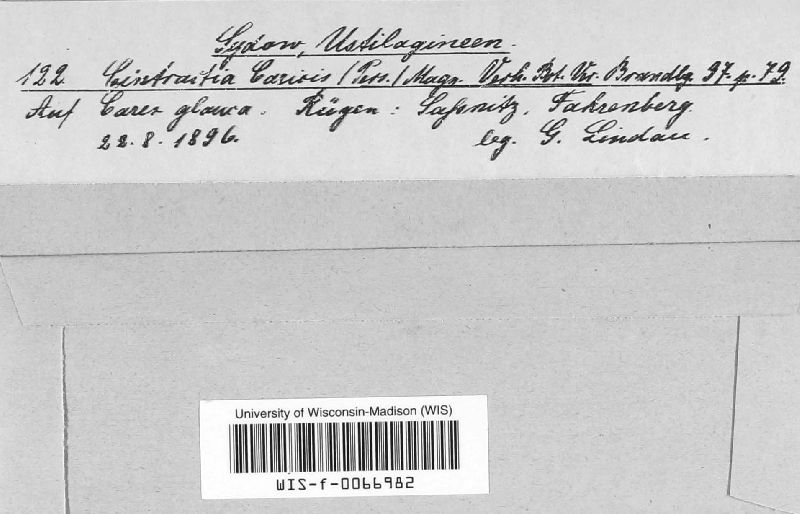 Sydow, Ustilagineen.
122 Cintractia Caricis (Pers.) Magn. Verh. Bot. Ver. Brandbg. 37. p. 79.
Auf Carex glauca. Rügen: Saßnitz, Fahrenberg.
22.8.1896. leg. G. Lindau.
University of Wisconsin-Madison (WIS)
WIS-f-0066982